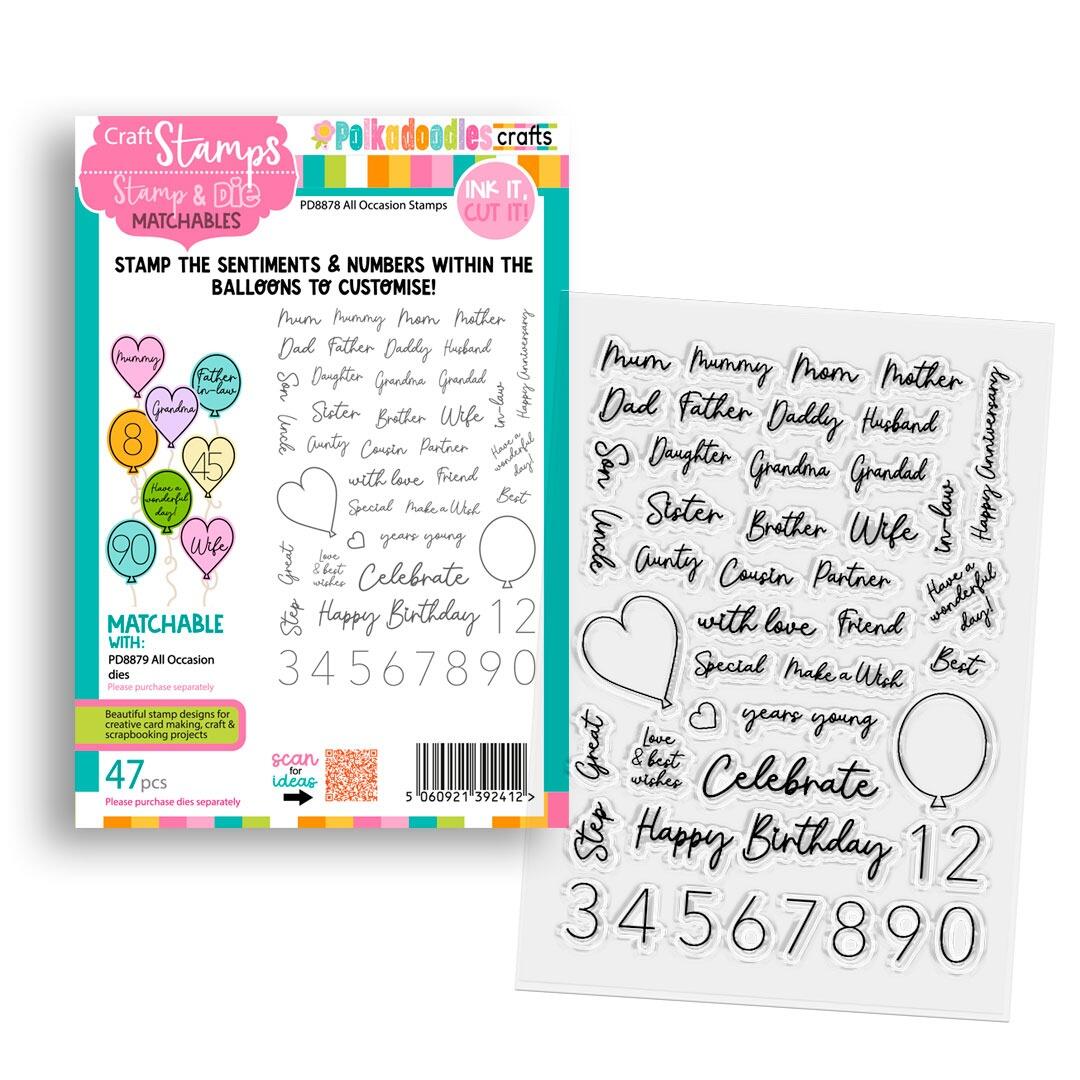 Craft Stamps
Stamp & Die
MATCHABLES
Polkadoodles crafts
PD8878 All Occasion Stamps
INK IT,
CUT IT!
STAMP THE SENTIMENTS & NUMBERS WITHIN THE
BALLOONS TO CUSTOMISE!
Mummy
Father
in-law
Grandma
8
45
Have a
wonderful
day!
90
Wife
Mum Mummy Mom Mother
Dad Father Daddy Husband
Son Daughter Grandma Grandad
Happy Anniversary
Uncle Sister Brother Wife in-law
Aunty Cousin Partner
Have a
wonderful
day!
with love Friend
Special Make a Wish Best
years young
Great
Love
& best
wishes
Celebrate
Step Happy Birthday 1 2
3 4 5 6 7 8 9 0
MATCHABLE
WITH:
PD8879 All Occasion
dies
Please purchase separately
Beautiful stamp designs for
creative card making, craft &
scrapbooking projects
47pcs
Please purchase dies separately
scan
for
ideas
5 060921 392412 >
Mum Mummy Mom Mother
Dad Father Daddy Husband
Son Daughter Grandma Grandad
Happy Anniversary
Uncle Sister Brother Wife in-law
Aunty Cousin Partner
Have a
wonderful
day!
with love Friend
Special Make a Wish Best
years young
Great
Love
& best
wishes
Celebrate
Step Happy Birthday 1 2
3 4 5 6 7 8 9 0